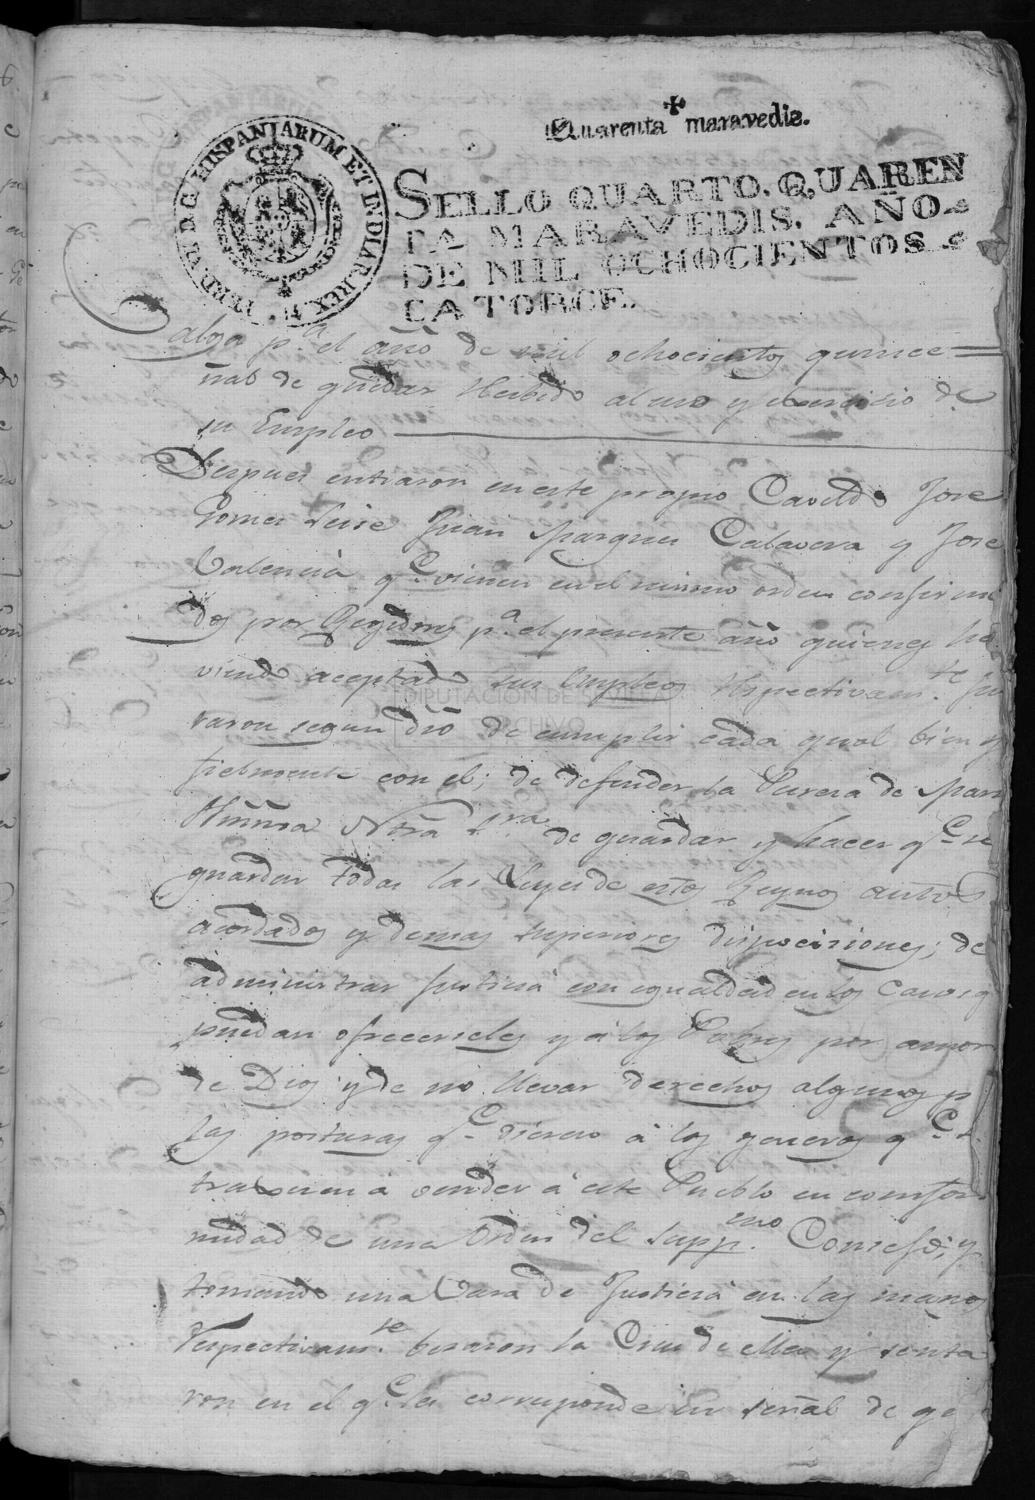 Quarenta maravedis.
FERD. VII D. G. HISPANIARUM ET INDIAR. REX
SELLO QUARTO. QUAREN
TA MARAVEDIS. AÑO
DE MIL OCHOCIENTOS
CATORCE.
algo p.a el año de mil ochocientos quince
ñal de quedar Recivido al uso y exercisio de
su Empleo
Despues entraron en este propio Cavildo Jose
Gomes Juan Marques Calavera y Jose
Valencia q.e vienen en el mismo orden confirma
dos por Regidores p.a el presente año quienes ha
viendo aceptado sus Empleos respectivam.te ju
raron segun dro de cumplir cada qual bien y
fielmente con el; de defender la Puresa de Mari
Ntra S.ra de guardar y hacer q.e se
guarden todas las Leyes de estos Reynos autos
acordados y demas superiores disposiciones; de
administrar justicia con igualdad en los casos q
puedan ofrecerseles y á los Pobres por amor
de Dios y de no llevar derechos algunos p
las posturas q.e dieren á los generos q.e s
traxeren á vender á este Pueblo en confor
midad de una Orden del Supp.mo Consejo, y
tomando una Vara de Justicia en las manos
respectivam.te besaron la Cruz de ella y senta
ron en el q.e les corresponde en señal de q
DIPUTACION DE SEVILLA
ARCHIVO